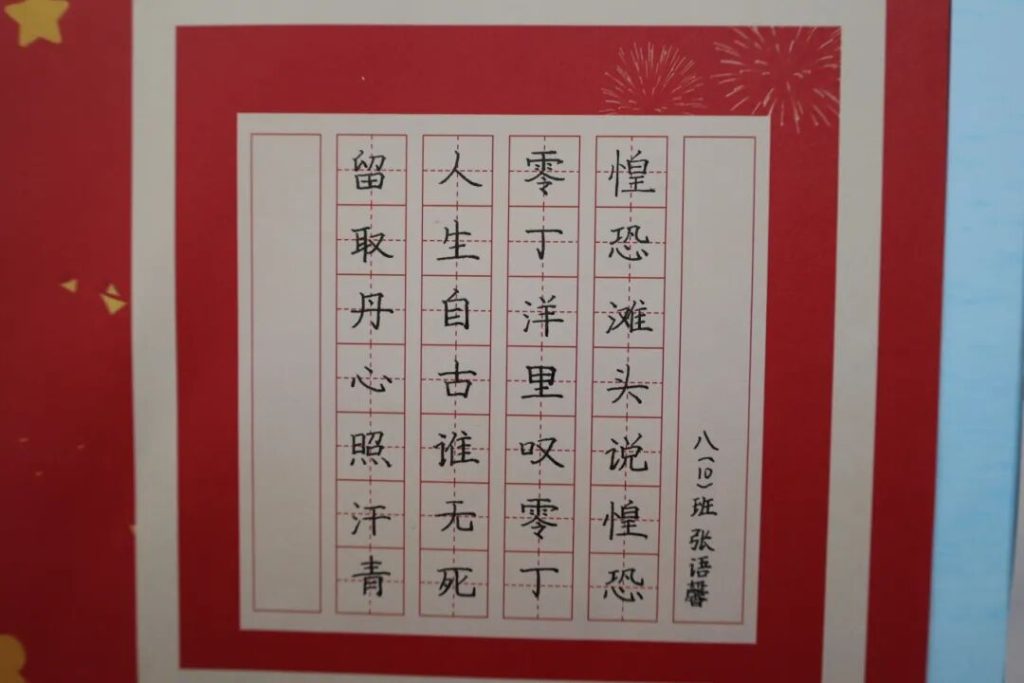 八(10)班 张语馨
惶恐滩头说惶恐
零丁洋里叹零丁
人生自古谁无死
留取丹心照汗青